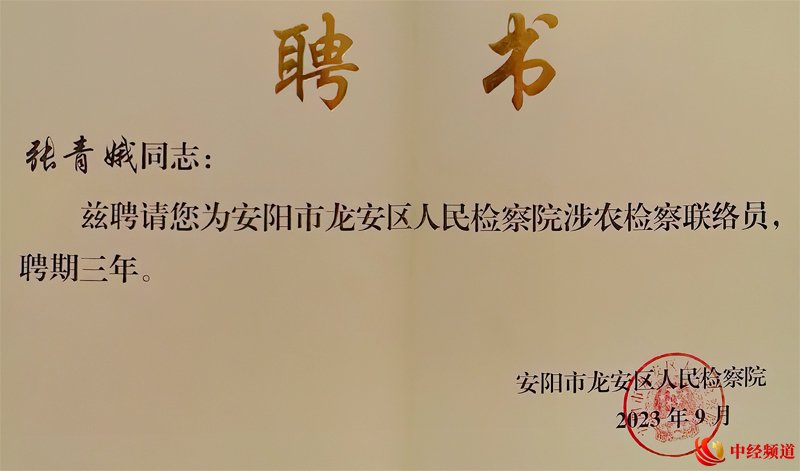 聘书
张青娥同志：
兹聘请您为安阳市龙安区人民检察院涉农检察联络员，
聘期三年。
安阳市龙安区人民检察院
2023年9月
中经频道